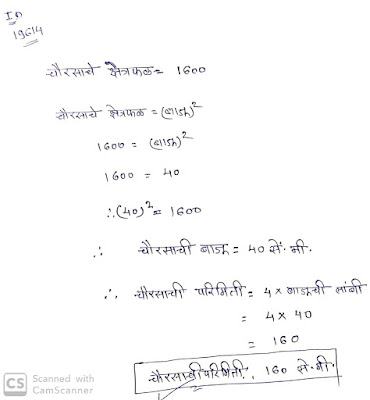 ID
19614
चौरसाचे क्षेत्रफळ = 1600
चौरसाचे क्षेत्रफळ = (बाजू)²
1600 = (बाजू)²
1600 = 40
∴ (40)² = 1600
∴ चौरसाची बाजू = 40 सें.मी.
∴ चौरसाची परिमिती = 4 × बाजूची लांबी
= 4 × 40
= 160
चौरसाची परिमिती, 160 से.मी.
CS Scanned with
CamScanner